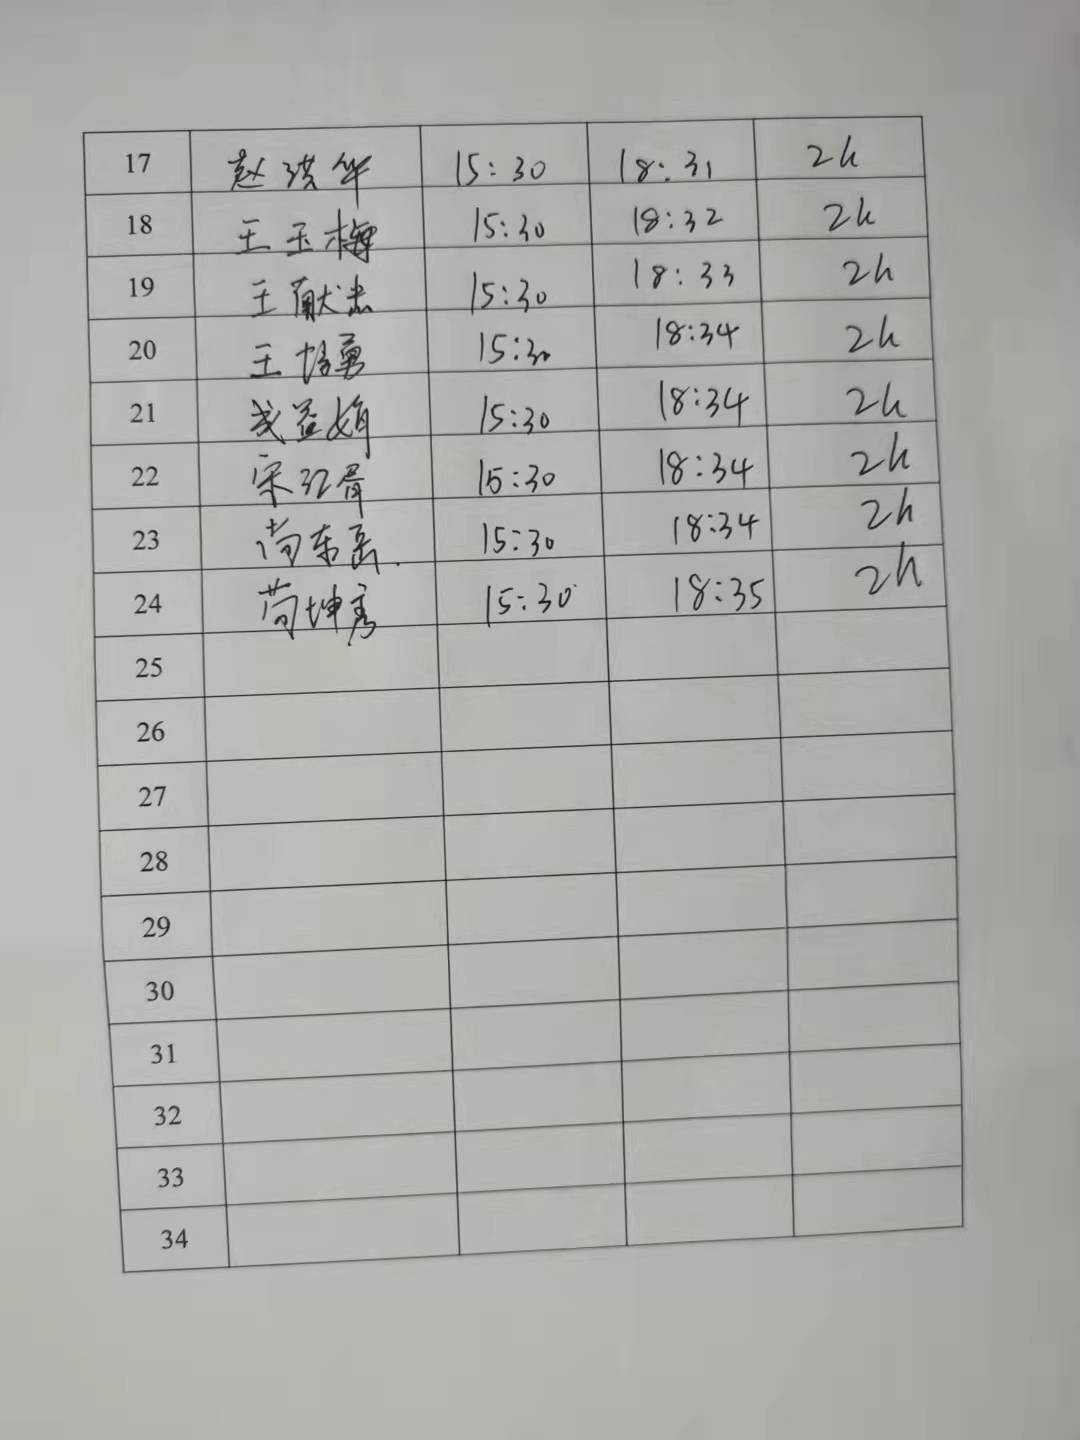 17 赵洪华 15:30 18:31 2h
18 王玉梅 15:30 18:32 2h
19 王献忠 15:30 18:33 2h
20 王培勇 15:30 18:34 2h
21 益娟 15:30 18:34 2h
22 宋红霄 15:30 18:34 2h
23 尚东岳 15:30 18:34 2h
24 苟坤秀 15:30 18:35 2h
25
26
27
28
29
30
31
32
33
34